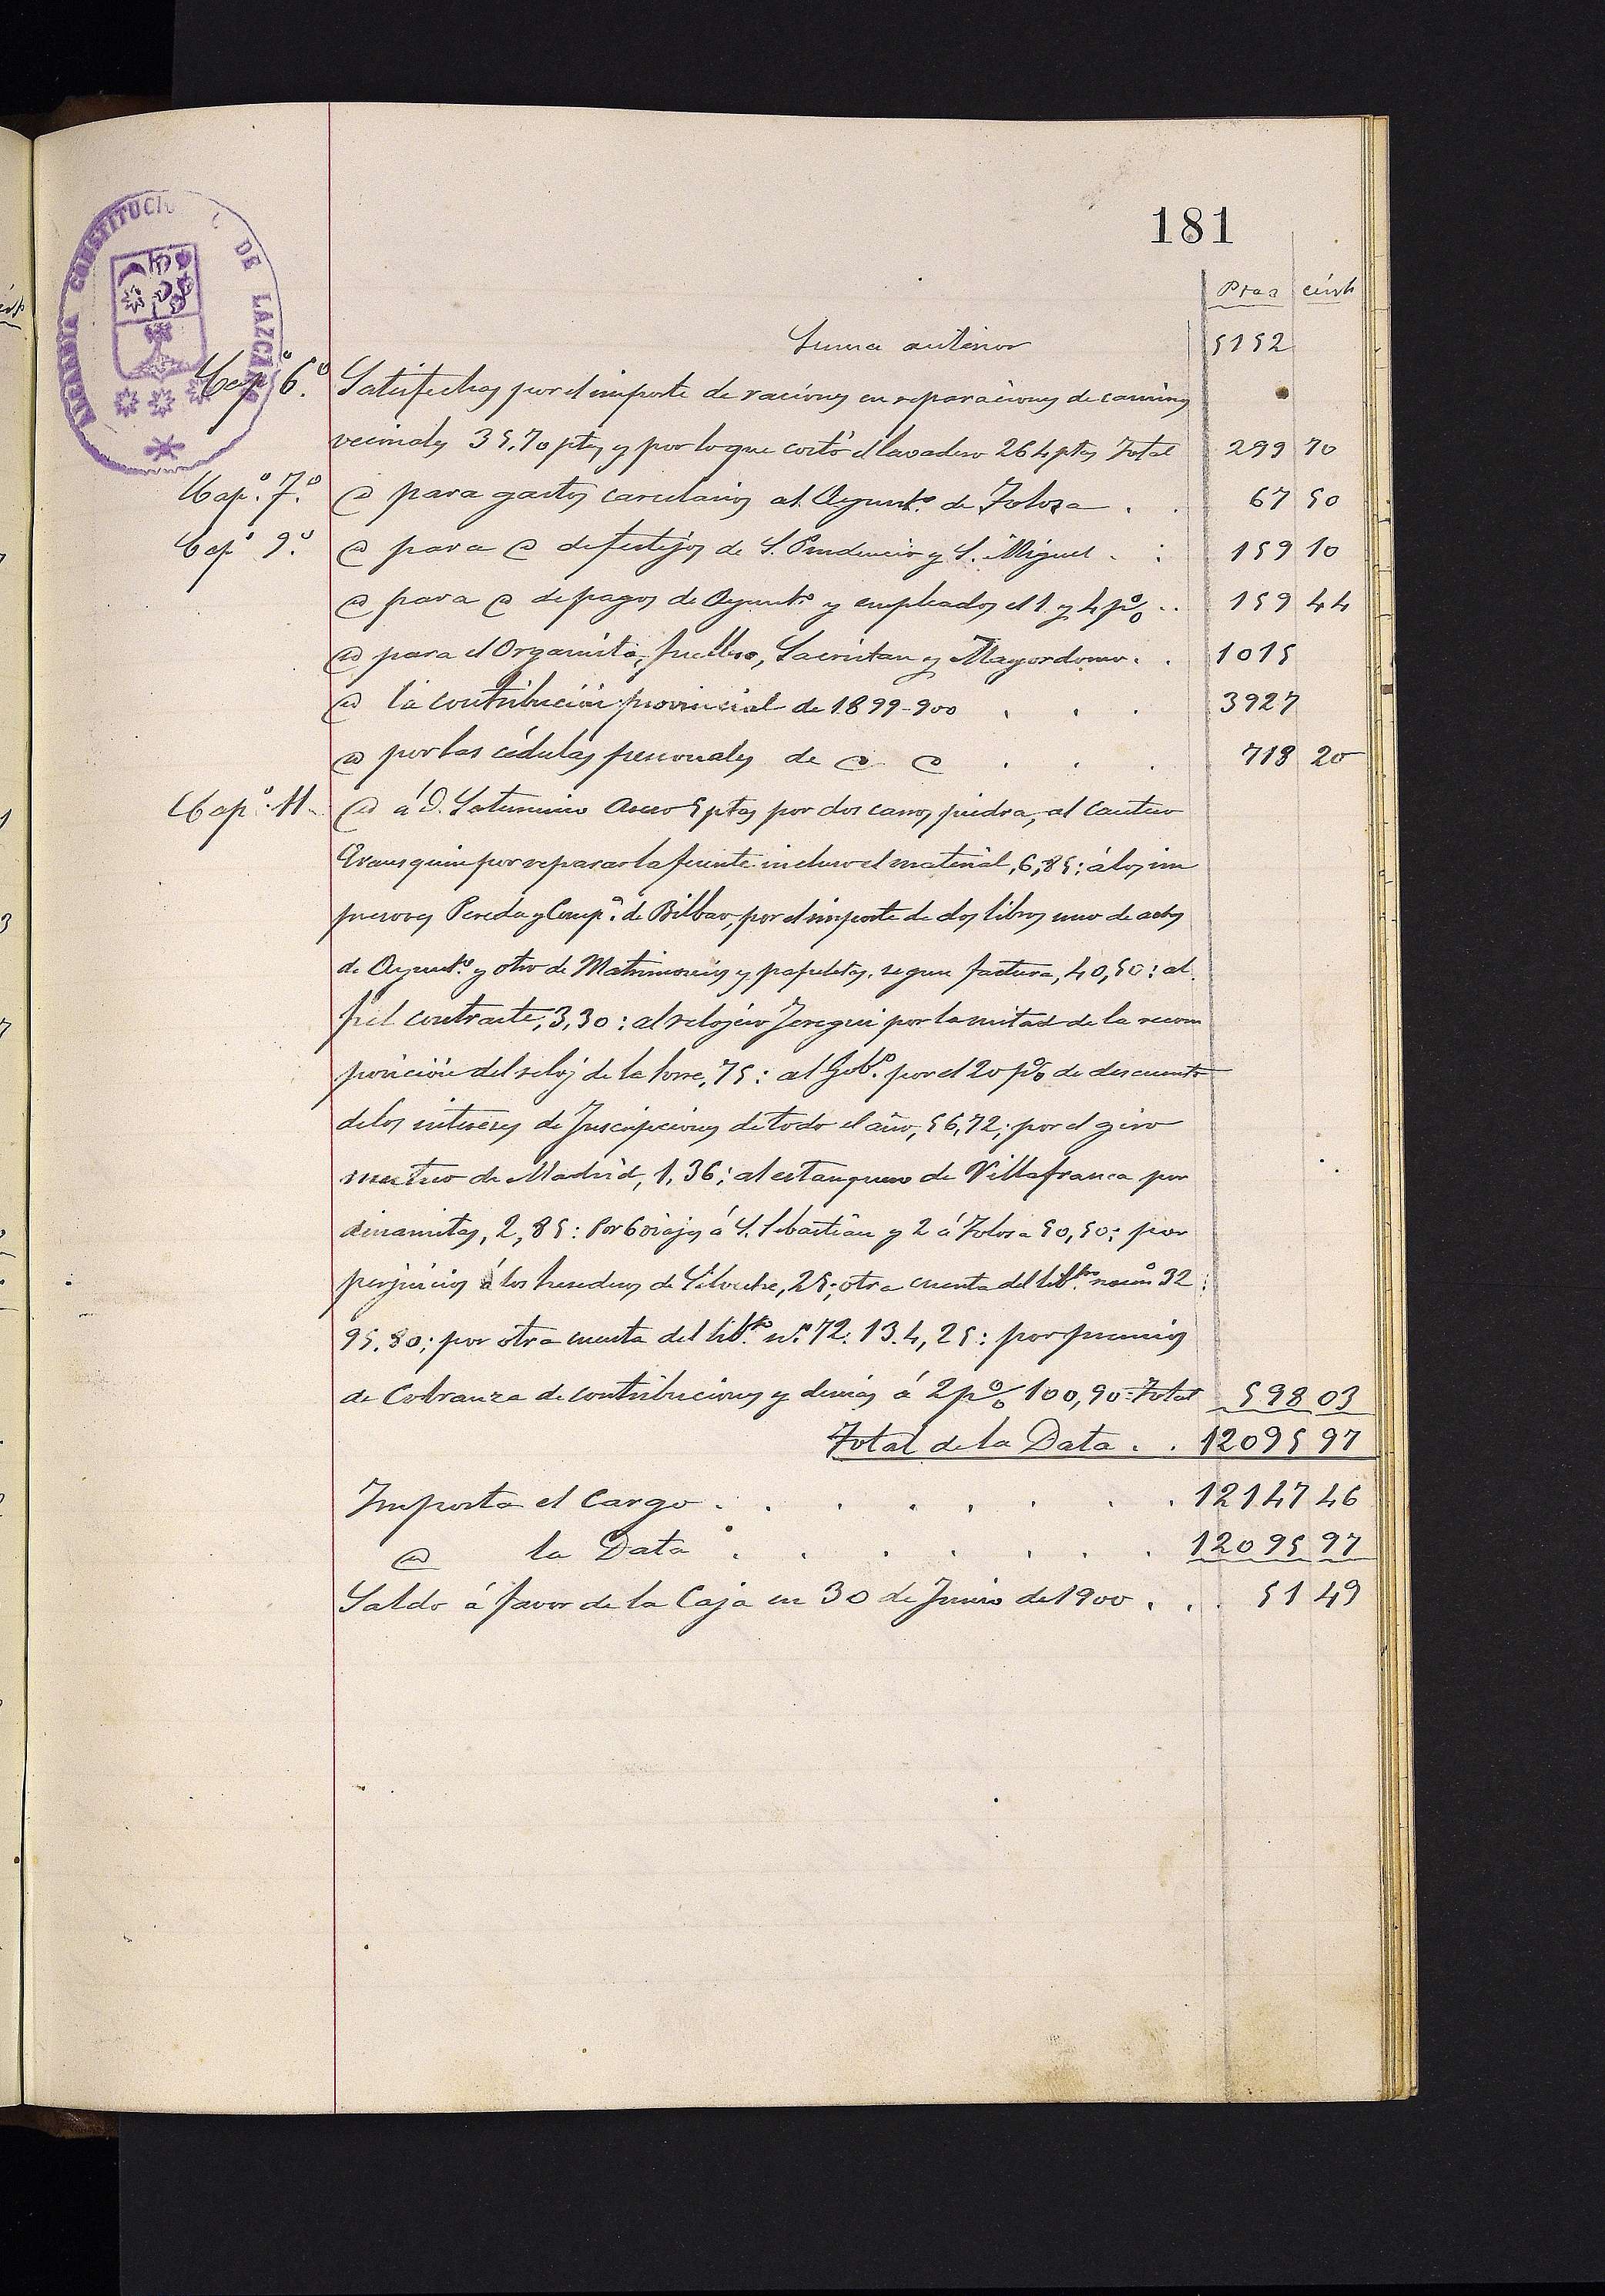 181
Ptas cénts
Suma anterior 5152
Cap.º 6.º Satisfechas por el importe de raciones en reparaciones de caminos
vecinales 35,70 ptas y por lo que costó el lavadero 264 ptas Total 299 70
Cap.º 7.º @ para gastos carcelarios al Ayunt.º de Tolosa . . 67 50
Cap.º 9.º @ para @ de festejos de S. Prudencio y S. Miguel . : 159 10
@ para @ de pagos de Ayunt.º y empleados el 1 y 4 p% .. 159 44
@ para el Organista, fuellero, Sacristan y Mayordomo . . 1015
@ la contribución provincial de 1899-900 . . . 3927
@ por las cédulas personales de @ @ . . . 718 20
Cap.º 11. @ á D. Saturnino 5 ptas por dos carros piedra, al cantero
Erausquin por reparar la fuente incluso el material, 6,85: á los im
presores Pereda y Comp.ª de Bilbao, por el importe de dos libros uno de actas
de Ayunt.º y otro de Matrimonios y papeletas, segun factura, 40,50: al
fiel contraste, 3,30: al relojero Jeregui por la mitad de la recom
posición del reloj de la torre, 75: al Gob.º por el 20 p% de descuento
de los intereses de Inscripciones de todo el año, 56,72; por el giro
mutuo de Madrid, 1,36; al estanquero de Villafranca por
dinamitas, 2,85: Por 6 viajes á S. Sebastián y 2 á Tolosa 50,50; por
perjuicios á los herederos de 25; otra cuenta del lib.to num.º 32:
95.80; por otra cuenta del lib.to n.º 72: 134,25: por premios
de Cobranza de contribuciones y demás á 2 p% 100,90= Total 598 03
Total de la Data . . 12095 97
Importa el Cargo . . . . . . . . 12147 46
@ la Data . . . . . . . 12095 97
Saldo á favor de la Caja en 30 de Junio de 1900 . . . 51 49
ALCALDIA CONSTITUCI L DE LAZCANO